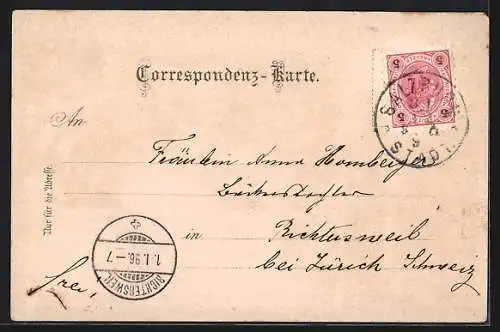 Correspondenz-Karte.
5 5
5 5
An
Fräulein Anna Homberger
Bäckerstochter
in Richtersweil
bei Zürich Schweiz
frei,
Nur für die Adresse.
1.I.96.-7
RICHTERSWEIL
STADT